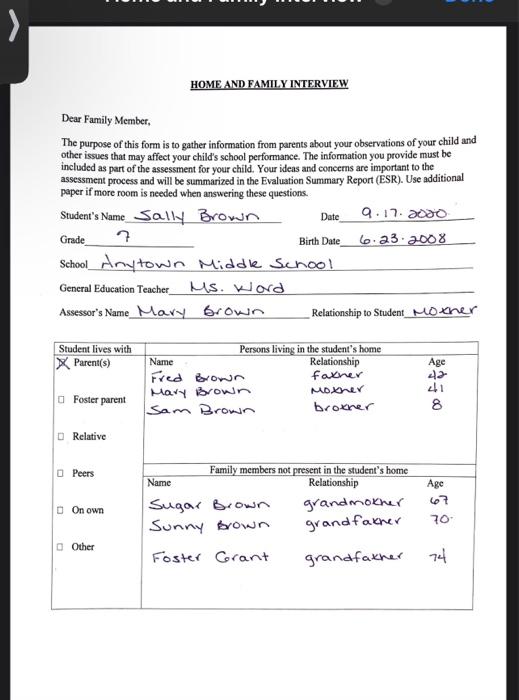 HOME AND FAMILY INTERVIEW
Dear Family Member,
The purpose of this form is to gather information from parents about your observations of your child and
other issues that may affect your child's school performance. The information you provide must be
included as part of the assessment for your child. Your ideas and concerns are important to the
assessment process and will be summarized in the Evaluation Summary Report (ESR). Use additional
paper if more room is needed when answering these questions.
Student's Name Sally Brown Date 9.17.2020
Grade 7 Birth Date 6.23.2008
School Anytown Middle School
General Education Teacher Ms. Word
Assessor's Name Mary Brown Relationship to Student Mother
Student lives with Persons living in the student's home
Parent(s) Name Relationship Age
Fred Brown father 42
Mary Brown Mother 41
Foster parent
Sam Brown brother 8
Relative
Peers Family members not present in the student's home
Name Relationship Age
Sugar Brown grandmother 67
On own
Sunny Brown grandfather 70
Other
Foster Grant grandfather 74